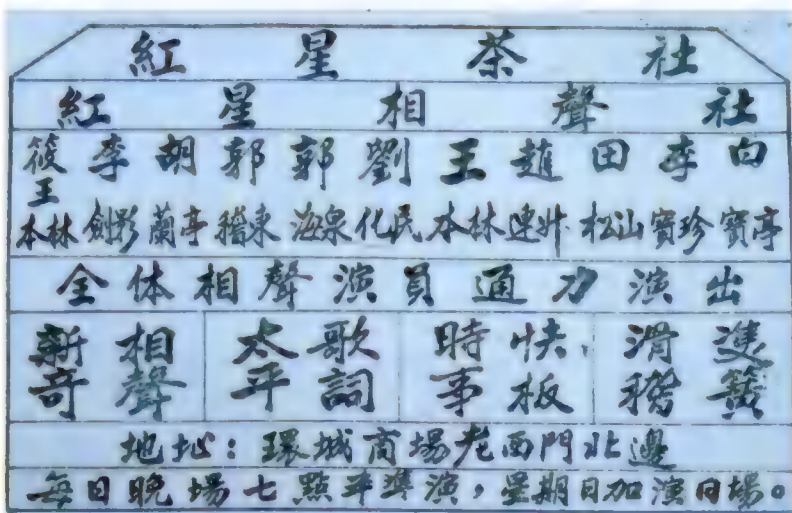 紅星茶社
紅星相聲社
筱王本林 李劍影 胡蘭亭 郭稽東 郭海泉 劉化民 王本林 趙連升 田松山 李寶珍 白寶亭
全体相聲演員通力演出
新奇相聲 太平歌詞 時事快板 滑稽雙簧
地址：環城商場老西門北邊
每日晚場七點半準演，星期日加演日場。